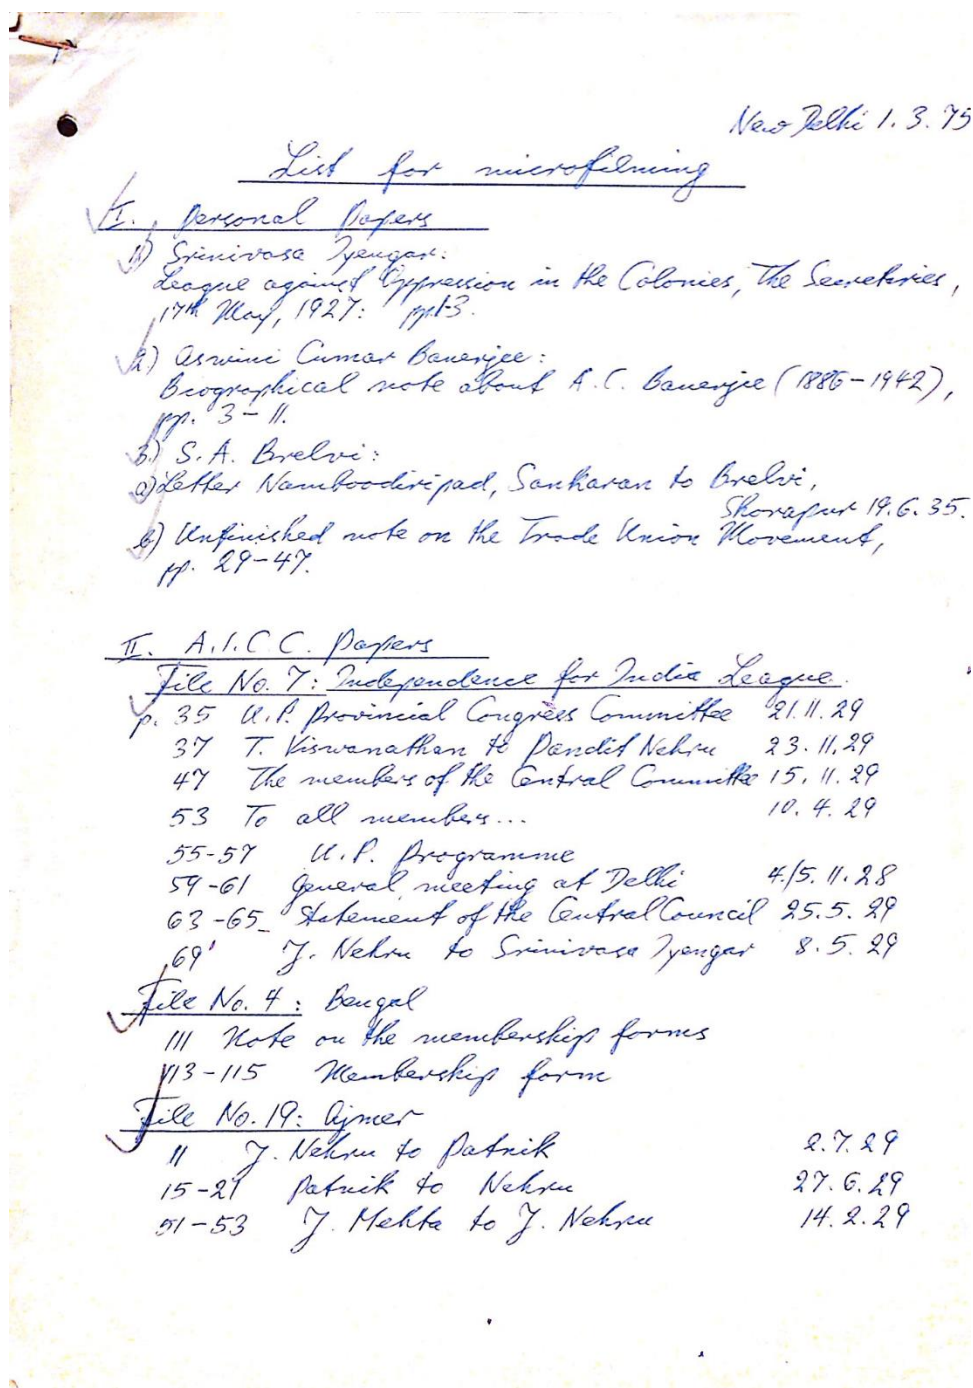 New Delhi 1.3.75
List for microfilming
I. Personal Papers
1) Srinivasa Iyengar:
League against Oppression in the Colonies, The Secretaries,
17th May, 1927: pp. 1-3.
2) Aswini Cumar Banerjee:
Biographical note about A.C. Banerjee (1886-1942),
pp. 3-11.
3) S.A. Brelvi:
a) Letter Namboodiripad, Sankaran to Brelvi,
Shorapur 19.6.35.
b) Unfinished note on the Trade Union Movement,
pp. 29-47.
II. A.I.C.C. Papers
File No. 7: Independence for India League.
p. 35 U.P. Provincial Congress Committee 21.11.29
37 T. Viswanathan to Pandit Nehru 23.11.29
47 The members of the Central Committee 15.11.29
53 To all members... 10.4.29
55-57 U.P. Programme
59-61 General meeting at Delhi 4./5.11.28
63-65 Statement of the Central Council 25.5.29
69 J. Nehru to Srinivasa Iyengar 8.5.29
File No. 4: Bengal
111 Note on the membership forms
113-115 Membership form
File No. 19: Ajmer
11 J. Nehru to Patnik 2.7.29
15-21 Patnik to Nehru 27.6.29
51-53 J. Mehta to J. Nehru 14.2.29